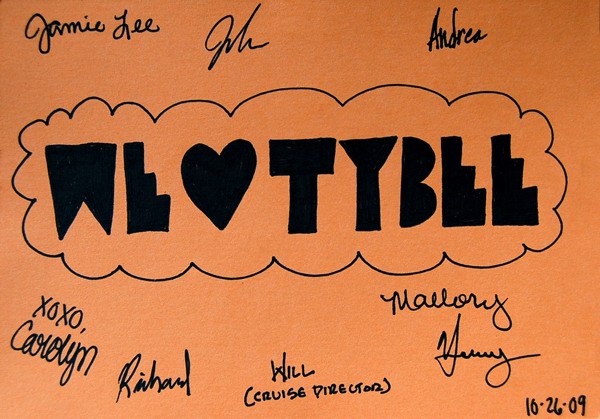 Jamie Lee
John
Andrea
WE ♥ TYBEE
XOXO,
Carolyn
Mallory
Richard
WILL
(CRUISE DIRECTOR)
10-26-09